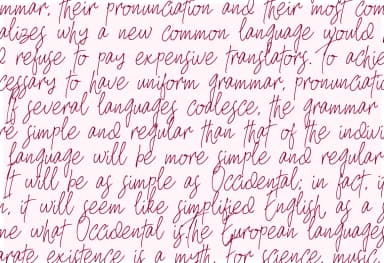 mmar, their pronunciation and their most com
alizes why a new common language would b
d refuse to pay expensive translators. To achie
cessary to have uniform grammar, pronunciatio
If several languages coalesce, the grammar
re simple and regular than that of the indivi
language will be more simple and regular
It will be as simple as Occidental; in fact, i
n, it will seem like simplified English, as a s
me what Occidental is.the European languages
arate existence is a myth. For science, music,